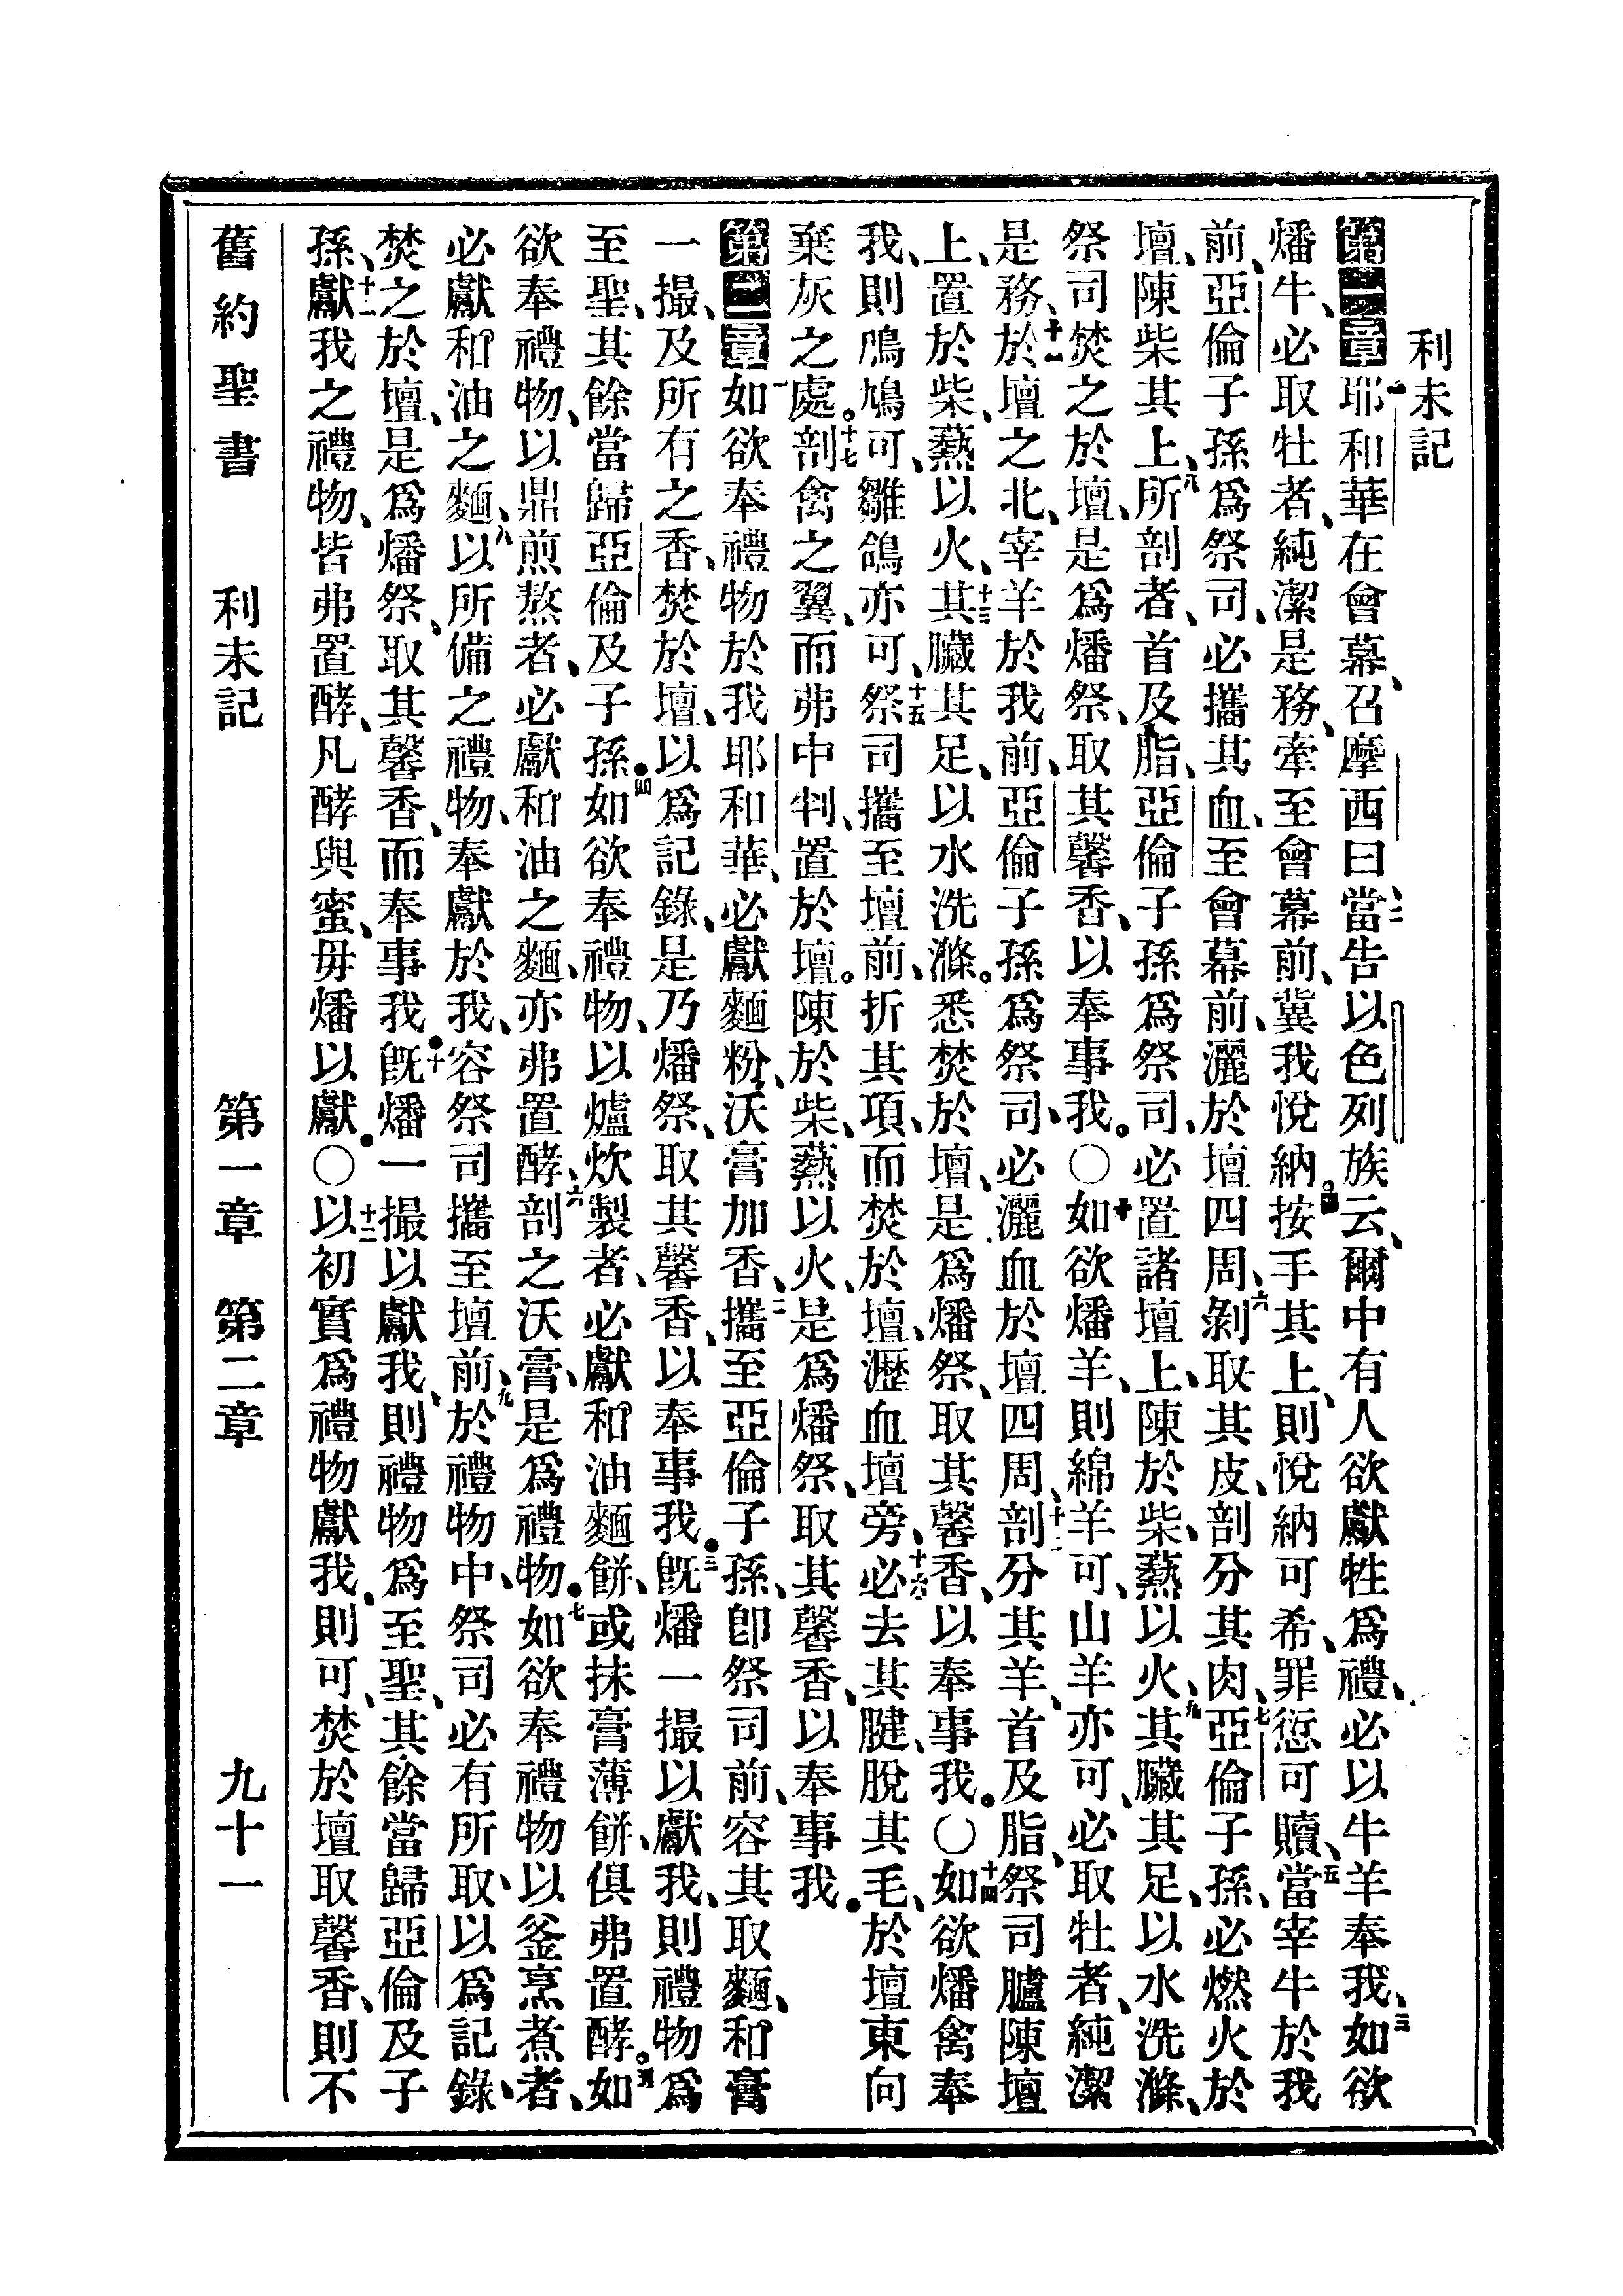 利未記
第一章一耶和華在會幕、召摩西曰、二當告以色列族云、爾中有人欲獻牲爲禮、必以牛羊奉我、三如欲
燔牛、必取牡者、純潔是務、牽至會幕前、冀我悅納。四按手其上、則悅納可希、罪愆可贖、五當宰牛於我
前、亞倫子孫爲祭司、必攜其血、至會幕前、灑於壇四周、六剝取其皮、剖分其肉、七亞倫子孫、必燃火於
壇、陳柴其上、八所剖者、首及脂、亞倫子孫爲祭司、必置諸壇上、陳於柴、爇以火、九其臟其足、以水洗滌、
祭司焚之於壇、是爲燔祭、取其馨香、以奉事我。○十如欲燔羊、則綿羊可、山羊亦可、必取牡者、純潔
是務、十一於壇之北、宰羊於我前、亞倫子孫爲祭司、必灑血於壇四周、十二剖分其羊、首及脂、祭司臚陳壇
上、置於柴、爇以火、十三其臟其足、以水洗滌。悉焚於壇、是爲燔祭、取其馨香、以奉事我。○十四如欲燔禽奉
我、則鳲鳩可、雛鴿亦可、十五祭司攜至壇前、折其項、而焚於壇、瀝血壇旁、十六必去其腱、脫其毛、於壇東向
棄灰之處。十七剖禽之翼、而弗中判、置於壇。陳於柴、爇以火、是爲燔祭、取其馨香、以奉事我。
第二章一如欲奉禮物於我耶和華、必獻麵粉、沃膏加香、二攜至亞倫子孫、卽祭司前、容其取麵、和膏
一撮、及所有之香、焚於壇、以爲記錄、是乃燔祭、取其馨香、以奉事我。三旣燔一撮以獻我、則禮物爲
至聖、其餘當歸亞倫及子孫。四如欲奉禮物、以爐炊製者、必獻和油麵餠、或抹膏薄餠、俱弗置酵。五如
欲奉禮物、以鼎煎熬者、必獻和油之麵、亦弗置酵、六剖之沃膏、是爲禮物。七如欲奉禮物以釜烹煮者、
必獻和油之麵、八以所備之禮物、奉獻於我、容祭司攜至壇前、九於禮物中、祭司必有所取、以爲記錄、
焚之於壇、是爲燔祭、取其馨香、而奉事我。十旣燔一撮以獻我、則禮物爲至聖、其餘當歸亞倫及子
孫、十一獻我之禮物、皆弗置酵、凡酵與蜜、毋燔以獻。○十二以初實爲禮物獻我、則可、焚於壇取馨香、則不
舊約聖書 利未記 第一章 第二章 九十一